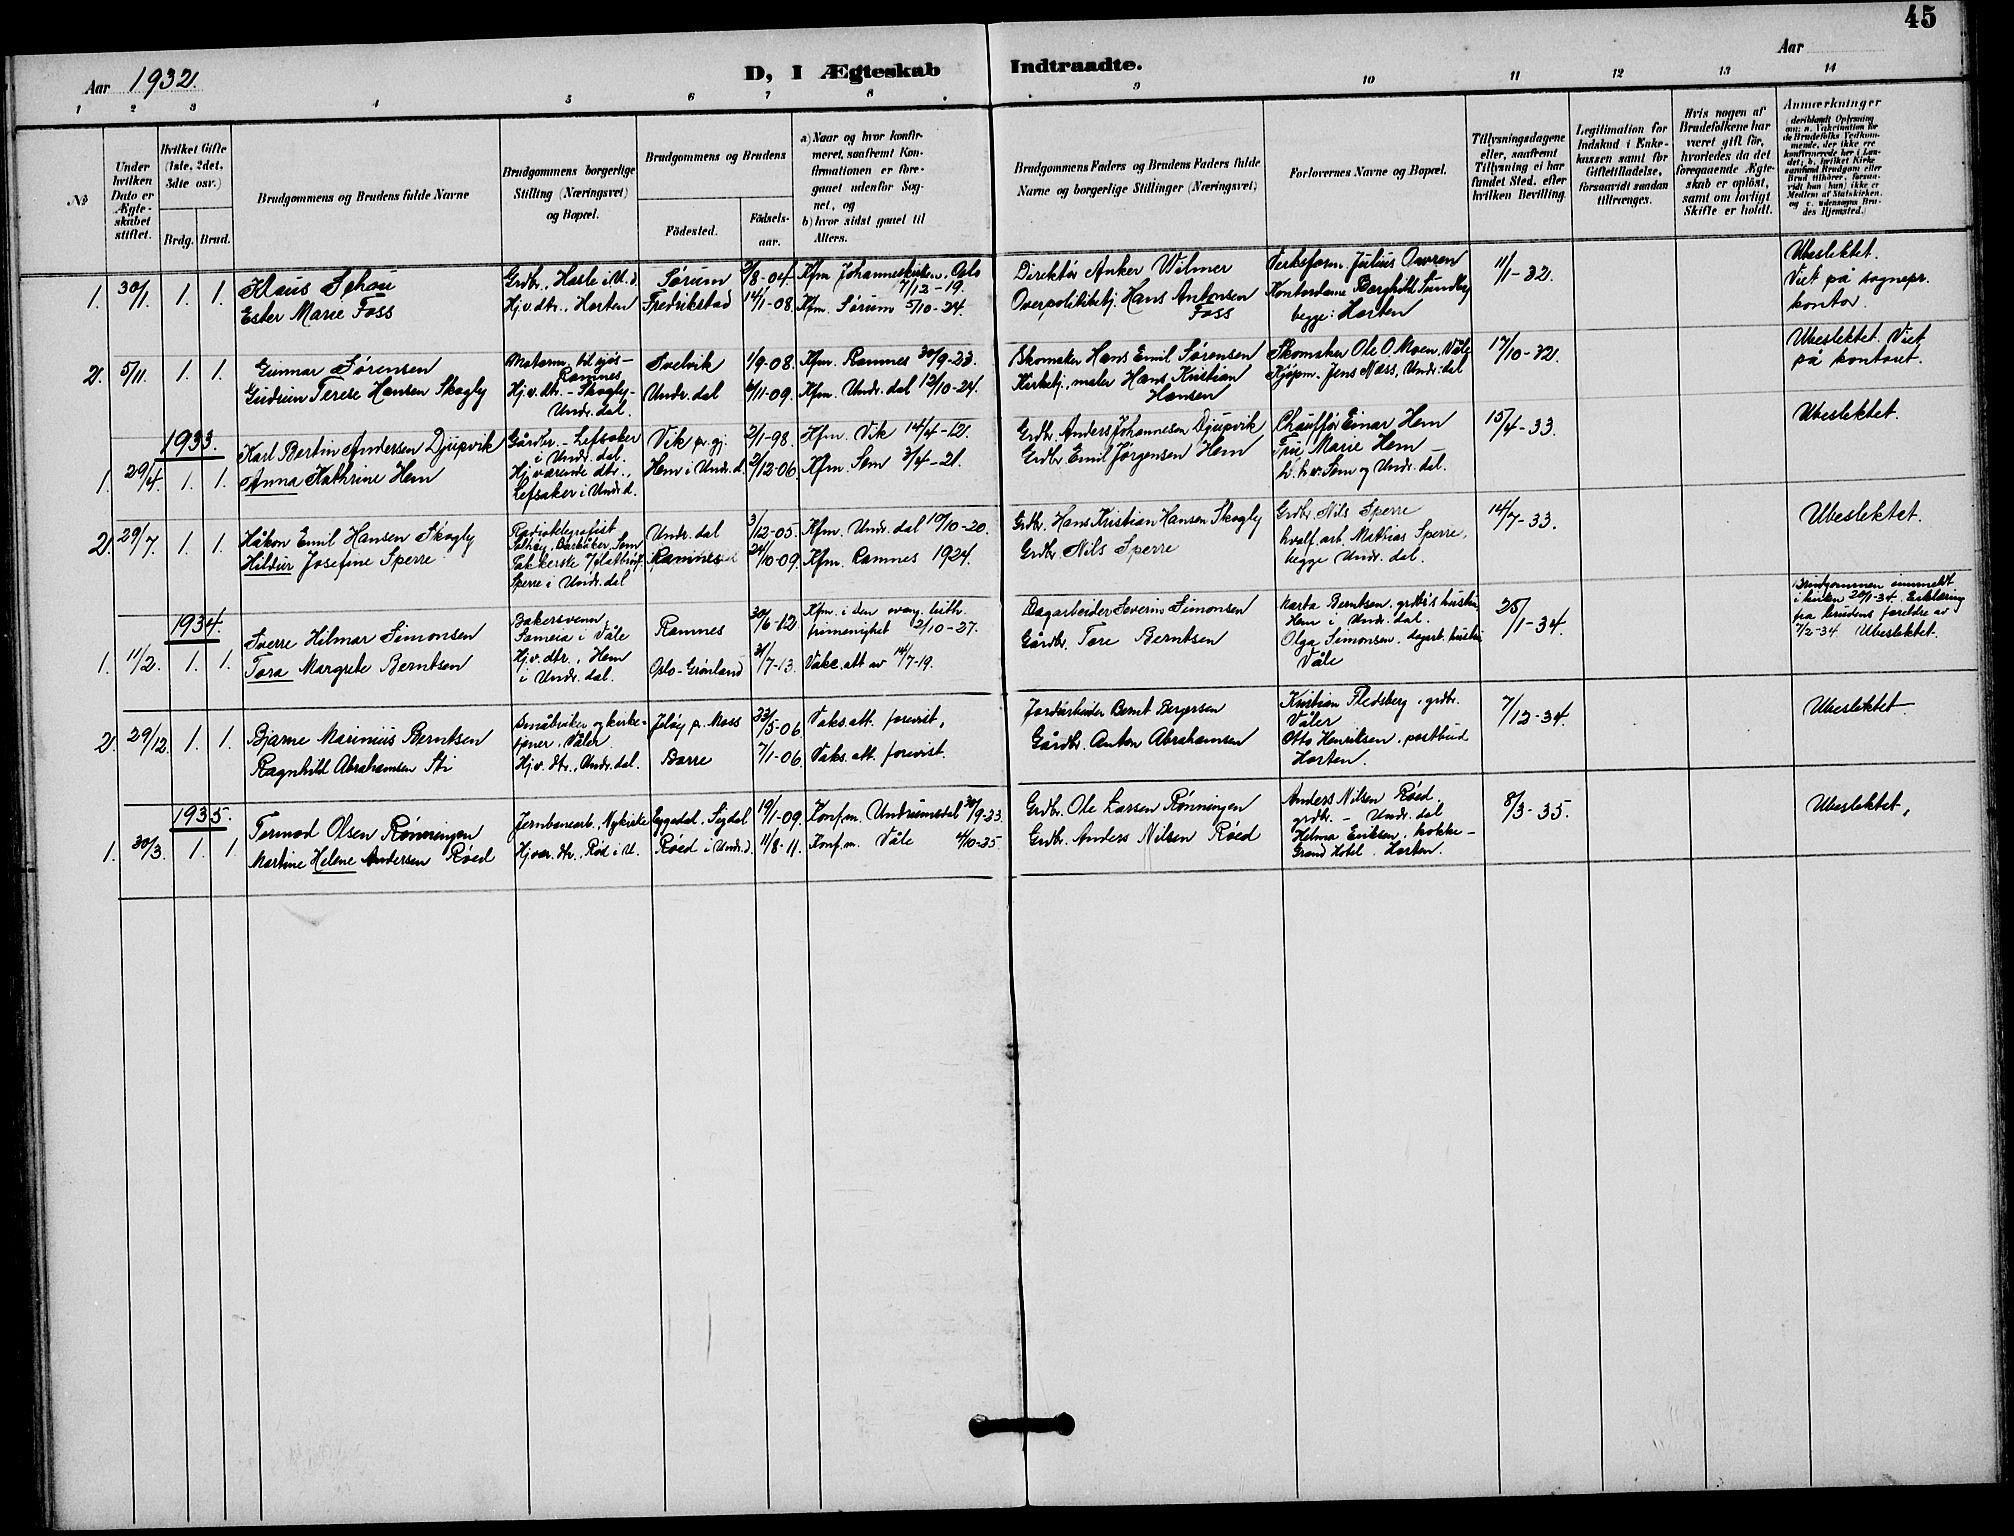 45
Aar 1932.
D, I Ægteskab Indtraadte.
Aar
1 2 3 4 5 6 7 8 9 10 11 12 13 14
№
Under hvilken Dato er Ægteskabet stiftet.
Hvilket Gifte (1ste, 2det, 3die osv.)
Brdg. Brud.
Brudgommens og Brudens fulde Navne
Brudgommens borgerlige Stilling (Næringsvei) og Bopæl.
Brudgommens og Brudens
Födested.
Födsels-aar.
a) Naar og hvor konfirmeret, saafremt Konfirmationen er foregaaet udenfor Sognet, og
b) hvor sidst gaaet til Alters.
Brudgommens Faders og Brudens Faders fulde Navne og borgerlige Stillinger (Næringsvei)
Forlovernes Navne og Bopæl.
Tillysningsdagene eller, saafremt Tillysning ei har fundet Sted, efter hvilken Bevilling.
Legitimation for Indskud i Enkekassen samt for Giftetilladelse, forsaavidt saadan tiltrænges.
Hvis nogen af Brudefolkene har været gift før, hvorledes da det foregaaende Ægteskab er opløst, samt om lovligt Skifte er holdt.
Anmærkninger
(deriblandt Oplysning om: a. Vakcination for de Brudefolks Vedkommende, der ikke ere konfirmerede her i Landet; b. hvilket Kirkesamfund Brudgom eller Brud tilhører, forsaavidt han (hun) ikke er Medlem af Statskirken, og c. udensogns Brudes Hjemsted.)
1. 30/1. 1. 1. Klaus Schou
Ester Marie Foss
Grdbr., Hasle i U.d.
Hjv. dtr., Horten
Sørum 2/8-04.
Fredrikstad 14/1-08.
Kfm. Johanneskirken, Oslo 7/12-19.
Kfm. Sørum 5/10-24.
Direktör Anker Wilmer
Overpolitibetj. Hans Antonsen Foss
Verksform. Julius Owren
Kontordame Borghild Sundby
begge: Horten
11/1-32.
Ubeslektet.
Viet på sognepr. kontor.
2. 5/11. 1. 1. Gunnar Sørensen
Gudrun Terese Hansen Skogly
Ramnes
Hjv. dtr. - Skogly - Undr. dal.
Svelvik 1/9-08.
Undr. dal 6/11-09.
Kfm. Ramnes 30/9-23.
Kfm. Undr. dal 12/10-24.
Skomaker Hans Emil Sørensen
Kirkebj., maler Hans Kristian Hansen
Skomaker Ole O. Moen, Våle
Kjøpm. Jens Næss, Undr. dal
17/10-32.
Ubeslektet. Viet på kontoret.
1933.
1. 29/4. 1. 1. Karl Bertin Andersen Djupvik
Anna Kathrine Hem
Gårdbr. - Lefsaker i Undr. dal.
Hjværende dtr., Lefsaker i Undr. d.
Vik pr. gj. 2/1-98.
Hem i Undr. d. 2/12-06.
Kfm. Vik 14/4-12.
Kfm. Sem 3/4-21.
Grdbr. Anders Johannesen Djupvik
Grdbr. Emil Jörgensen Hem
Chauffør Einar Hem
Fru Marie Hem -
h. h. v. Sem og Undr. dal.
15/4-33.
Ubeslektet.
2. 29/7. 1. 1. Håkon Emil Hansen Skogly
Hildur Josefine Sperre
Radiotelegrafist
Solhøy, Barkåker, Sem
Sperre i Undr. dal
Undr. dal 3/12-05.
Ramnes 24/10-09.
Kfm. Undr. dal 10/10-20.
Kfm. Ramnes 1924.
Grdbr. Hans Kristian Hansen Skogly
Grdbr. Nils Sperre
Grdbr. Nils Sperre
hvalf. arb. Mathias Sperre,
begge Undr. dal.
14/7-33.
Ubeslektet.
1934.
1. 11/2. 1. 1. Sverre Hilmar Simonsen
Tora Margrete Berntsen
Bakersvenn,
Sameia i Våle
Hjv. dtr., Hem i Undr. dal.
Ramnes 30/6-12
Oslo-Grønland 31/7-13.
Kfm. i den evang. luth. frimenighet 2/10-27.
Vakc. att av 14/7-19.
Dagarbeider Severin Simonsen
Gårdbr. Tore Berntsen
Marta Berntsen, grdbr's hustru
Hem i Undr. dal.
Olga Simonsen, dagarb. hustru
Våle
25/1-34.
Brudgommen innmeldt i kirken 20/1-34. Erklæring fra brudens foreldre av 7/2-34 Ubeslektet.
2. 29/12. 1. 1. Bjarne Marinius Berntsen
Ragnhild Abrahamsen Sti
Småbruker og kirketjener, Våler
Hjv. dtr., Undr. dal.
Jeløy p. Moss 23/5-06
Borre 7/1-06.
Vaks. att. forevist,
Vaks. att. forevist.
Jordarbeider Bernt Bergersen
Gårdbr. Anton Abrahamsen
Kristian Flesberg, grdbr.
Våler
Otto Henriksen, postbud
Horten.
7/12-34.
Ubeslektet
1935.
1. 30/3. 1. 1 Tormod Olsen Rønningen
Martine Helene Andersen Røed
Jernbanearb., Nykirke
Hjvær. dtr., Rød i U.
Eggedal, Sigdal 19/1-09.
Røed i Undr. d. 11/8-11.
Konfm. Undrumsdal 30/9-23.
Konf.m. Våle 4/10-25
Grdbr. Ole Larsen Rønningen
Grdbr. Anders Nilsen Røed
Anders Nilsen Røed.
grdbr. - Undr. dal
Helma Eriksen, kokke -
Grand Hotel, Horten.
8/3-35.
Ubeslektet,